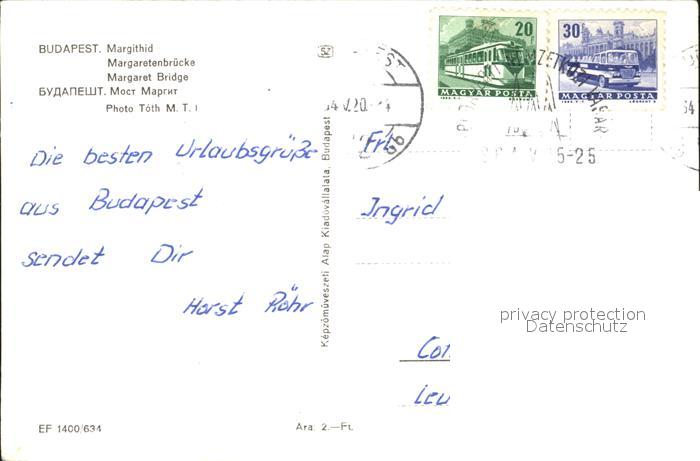 BUDAPEST. Margithid
Margaretenbrücke
Margaret Bridge
БУДАПЕШТ. Мост Маргит
Photo Tóth M. T. I
Die besten Urlaubsgrüße
aus Budapest
sendet Dir
Horst Röhr
EF 1400/634
Ara: 2.—Ft.
Képzőművészeti Alap Kiadóvállalata, Budapest
20
MAGYAR POSTA
30
MAGYAR POSTA
Frl.
Ingrid
privacy protection
Datenschutz